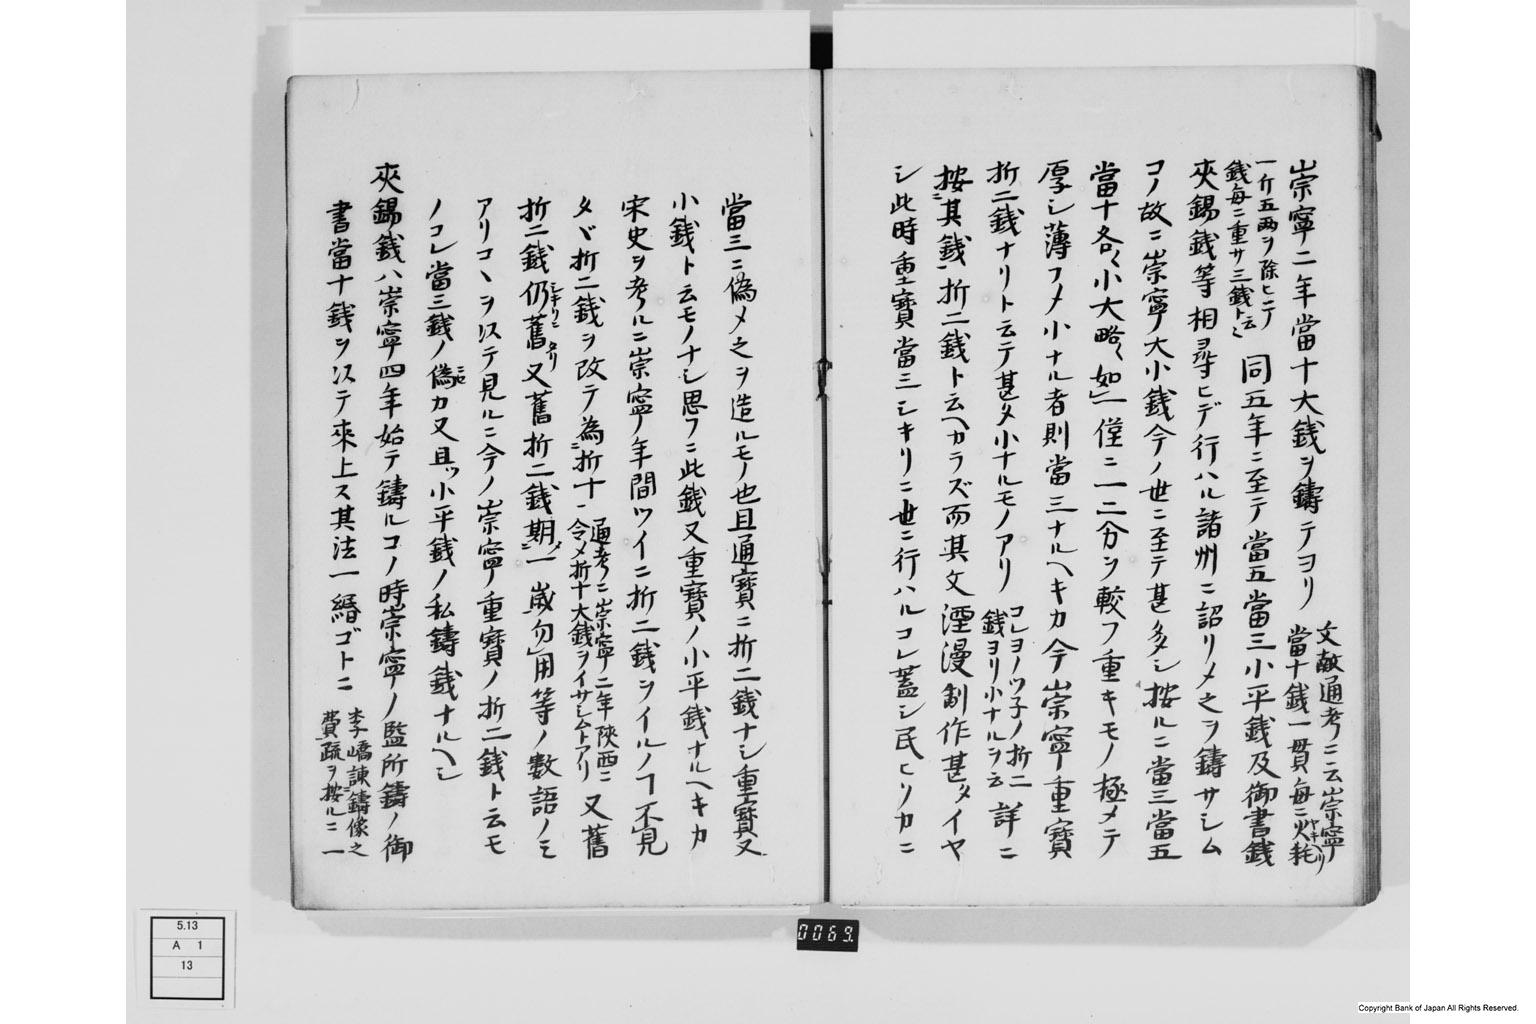 崇寧二年當十大銭ヲ鑄テヨリ
文献通考ニ云崇寧
當十銭一貫毎ニ火耗
一斤五两ヲ除ヒテ
銭毎ニ重サ三銭ト云
同五年ニ至テ當五當三小平銭及御書銭
夾錫銭等相尋ヒデ行ハル諸州ニ詔リメ之ヲ鑄サシム
コノ故ニ崇寧ノ大小銭今ノ世ニ至テ甚多シ按ルニ當三當五
當十各〻小大略〻如一僅ニ一二分ヲ較フ重キモノ極メテ
厚シ薄フメ小ナル者則當三ナルヘキカ今崇寧重寳
折二銭ナリト云テ甚タ小ナルモノアリ
コレヨノツ子ノ折二
銭ヨリ小ナルヲ云
詳ニ
按其銭折二銭ト云ヘカラズ而其文湮漫制作甚タイヤ
シ此時重寳當三シキリニ世ニ行ハルコレ蓋シ民ヒソカニ
當三ニ偽メ之ヲ造ルモノ也且通寳ニ折二銭ナシ重寳又
小銭ト云モノナシ思フニ此銭又重寳ノ小平銭ナルヘキカ
宋史ヲ考ルニ崇寧ノ年間ツイニ折二銭ヲイルノ不見
タヾ折二銭ヲ改テ為折十
通考ニ崇寧二年陝西ニ
令メ折十大銭ヲイサシムトアリ
又舊
折二銭仍舊又舊折二銭期一歳勿用等ノ數語ノミ
アリコヽヲ以テ見ルニ今ノ崇寧重寳ノ折二銭ト云モ
ノコレ當三銭ノ偽カ又且ツ小平銭ノ私鑄銭ナルヘシ
夾錫銭ハ崇寧四年始テ鑄ルコノ時崇寧ノ監所鑄ノ御
書當十銭ヲ以テ來上ス其法一緡ゴトニ
李嶠諌鑄像之
費疏ヲ按ルニ一
0069
5.13
A 1
13
Copyright Bank of Japan All Rights Reserved.